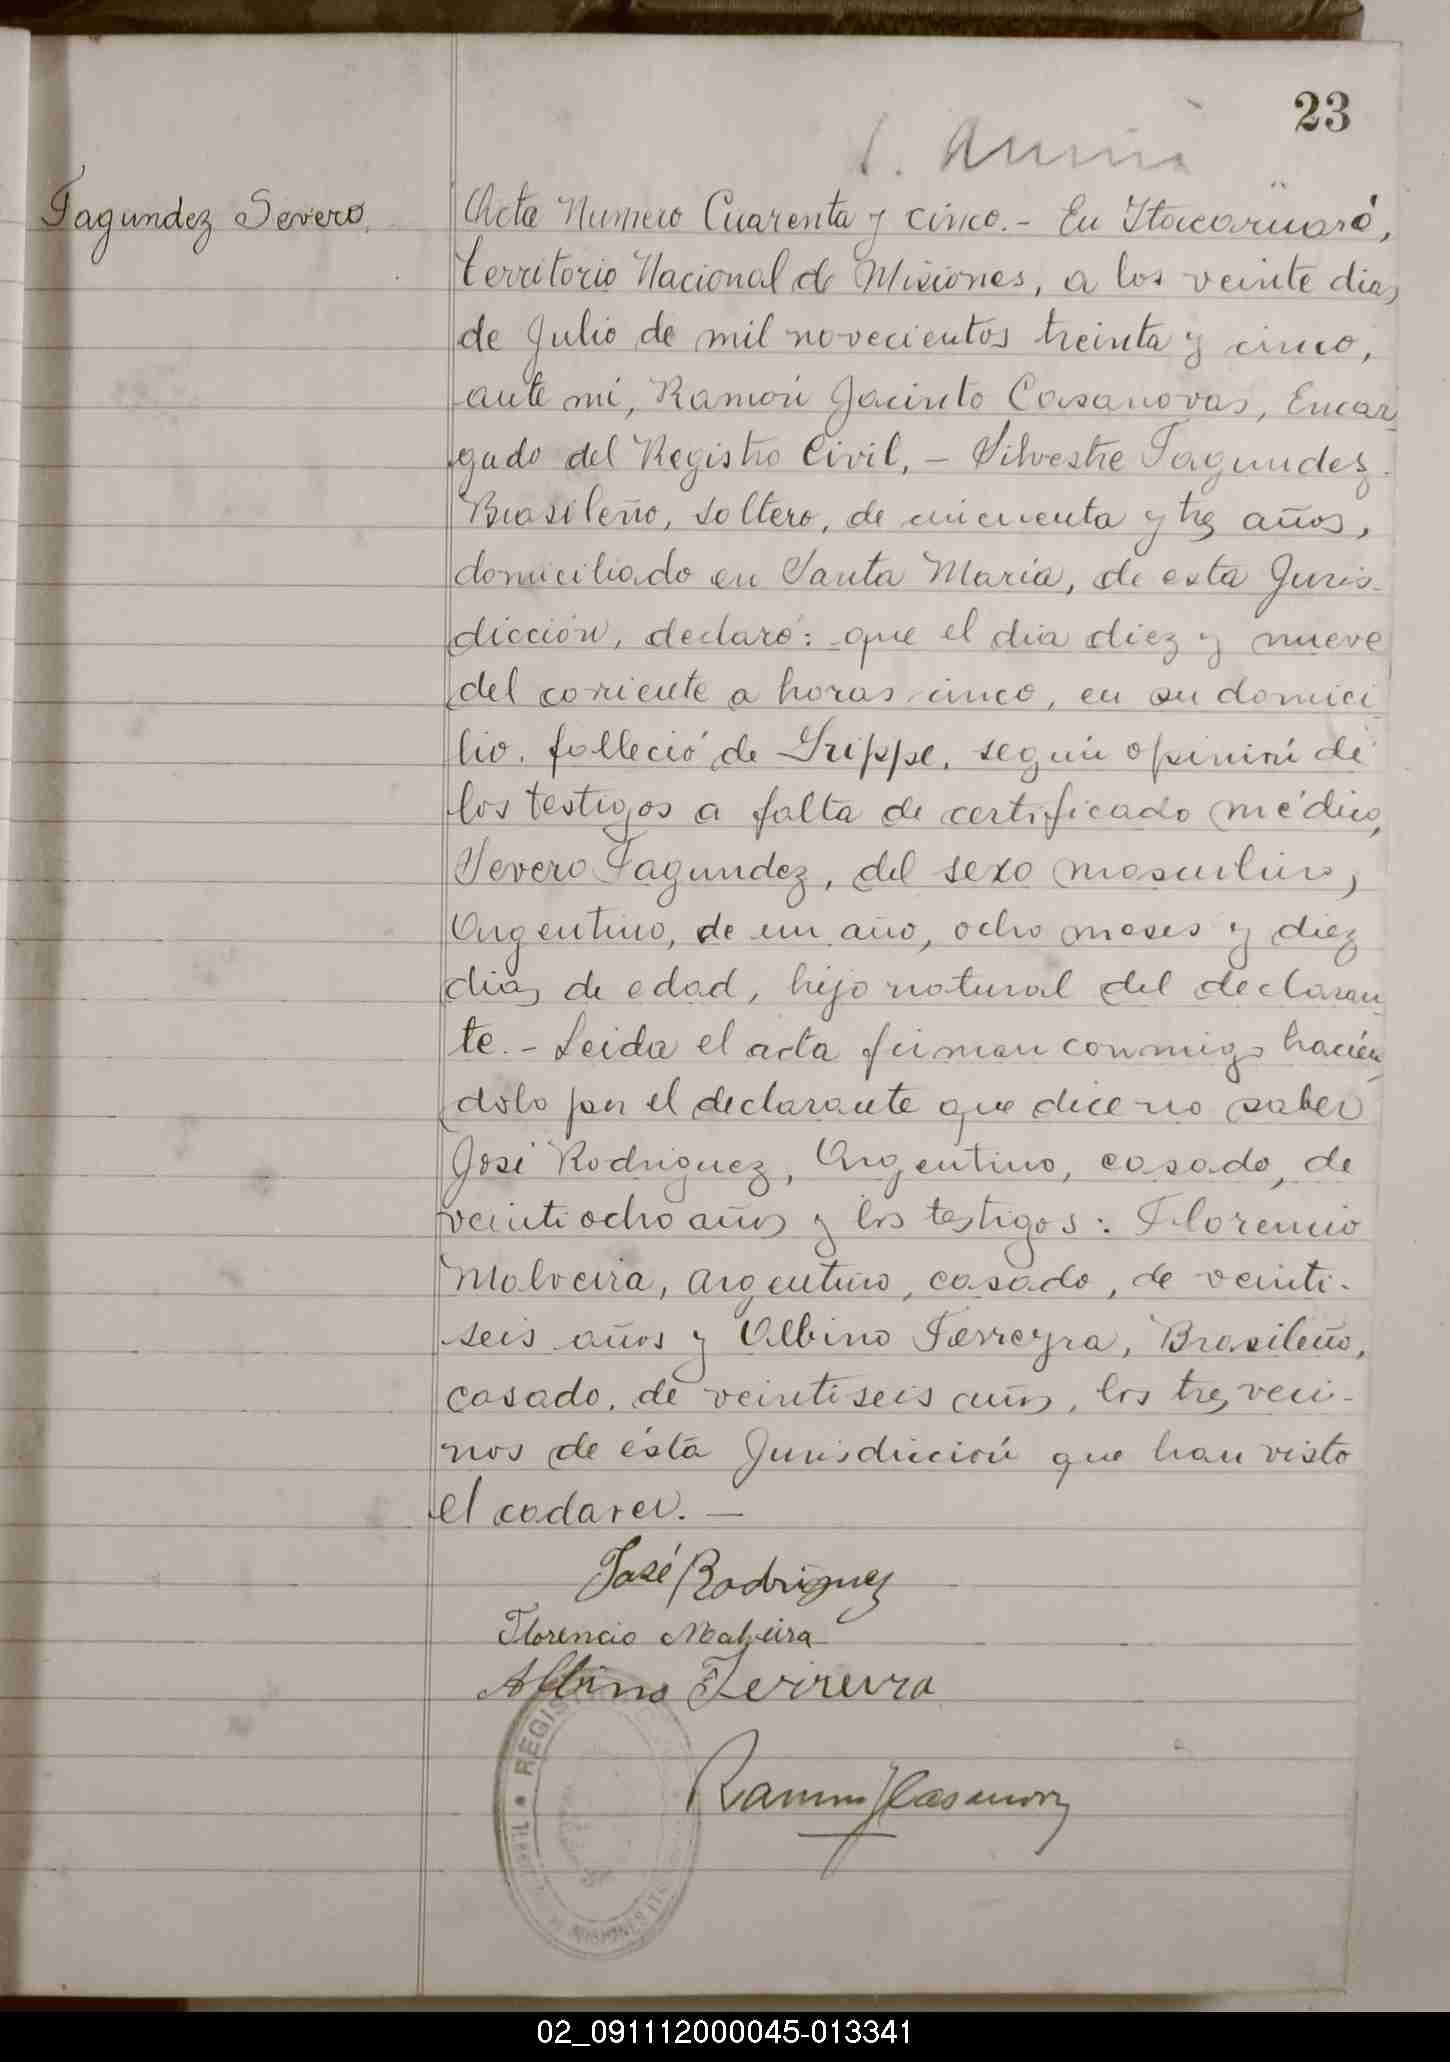 23
Fagundez Severo.
Acta Numero Cuarenta y cinco.- En Itacaruaré,
territorio Nacional de Misiones, a los veinte dias
de Julio de mil novecientos treinta y cinco,
ante mi, Ramón Jacinto Casanovas, Encar-
gado del Registro Civil, - Silvestre Fagundez.
Brasileño, soltero, de cincuenta y tres años,
domiciliado en Santa María, de esta Juris-
dicción, declaró: que el dia diez y nueve
del coriente a horas cinco, en su domici-
lio. falleció de Grippe, según opinión de
los testigos a falta de certificado médico,
Severo Fagundez, del sexo masculino,
Argentino, de un año, ocho meses y diez
dias de edad, hijo natural del declaran-
te. - Leida el acta firman conmigo hacién-
dolo por el declarante que dice no saber
José Rodriguez, Argentino, casado, de
veintiocho años y los testigos: Florencio
Malveira, argentino, casado, de veinti-
seis años y Albino Ferreyra, Brasileño,
casado, de veintiseis años, los tres veci-
nos de ésta Jurisdicción que han visto
el cadaver. —
José Rodriguez
Florencio Malveira
Albino Ferreira
Ramón J Casanovas
REGIS
MISIONES
02_091112000045-013341